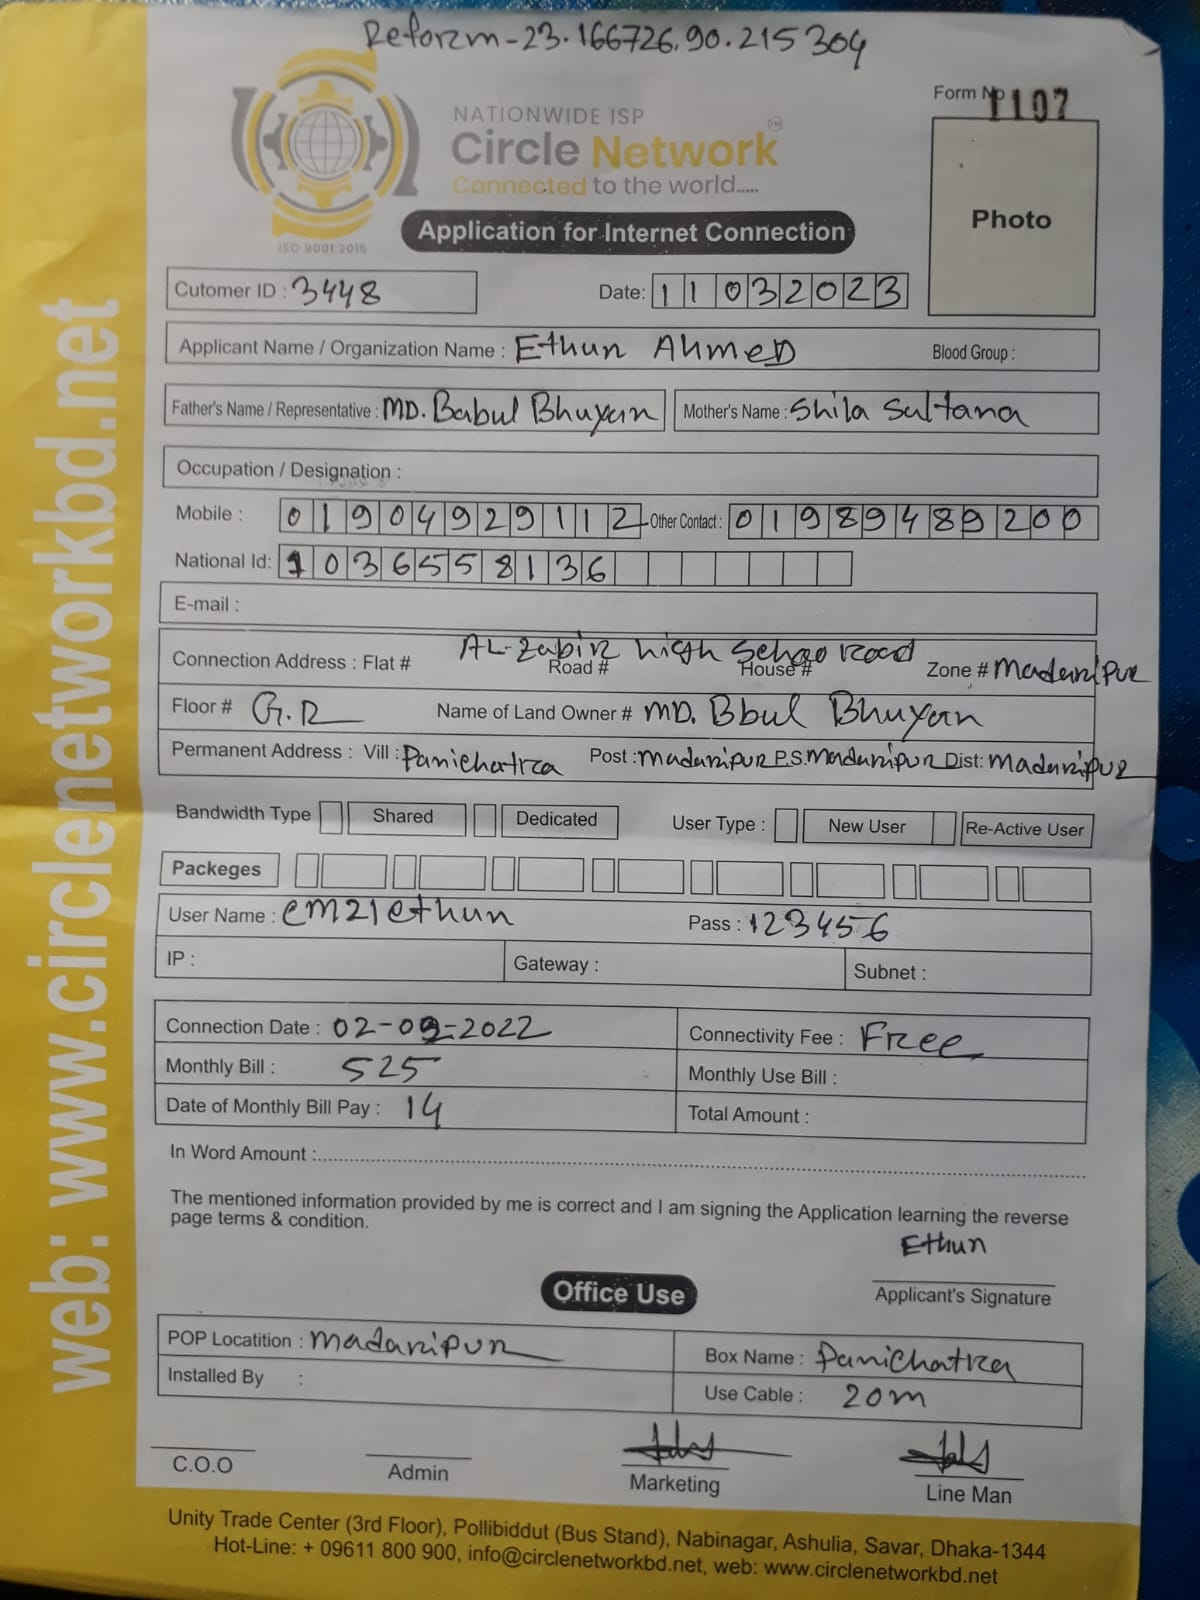 Reform-23.166726.90.215304
Form No 1107
NATIONWIDE ISP
Circle Network TM
Connected to the world.....
ISO 9001:2015
Application for Internet Connection
Photo
Cutomer ID : 3448 Date: 11032023
Applicant Name / Organization Name : Ethun Ahmed Blood Group :
Father's Name / Representative : MD. Babul Bhuyan Mother's Name : Shila Sultana
Occupation / Designation :
Mobile : 01904929112 Other Contact : 01989489200
National Id: 1036558136
E-mail :
Connection Address : Flat # AL-Zabir high School Road Road # House # Zone # Madaripur
Floor # G.R Name of Land Owner # MD. Bbul Bhuyan
Permanent Address : Vill : Panichatra Post : Madaripur P.S. Madaripur Dist: Madaripur
Bandwidth Type Shared Dedicated User Type : New User Re-Active User
Packeges
User Name : cm21ethun Pass : 123456
IP : Gateway : Subnet :
Connection Date : 02-09-2022 Connectivity Fee : Free
Monthly Bill : 525 Monthly Use Bill :
Date of Monthly Bill Pay : 14 Total Amount :
In Word Amount :
The mentioned information provided by me is correct and I am signing the Application learning the reverse
page terms & condition.
Ethun
Applicant's Signature
Office Use
POP Locatition : Madaripur Box Name : Panichatra
Installed By : Use Cable : 20m
C.O.O Admin Marketing Line Man
Unity Trade Center (3rd Floor), Pollibiddut (Bus Stand), Nabinagar, Ashulia, Savar, Dhaka-1344
Hot-Line: + 09611 800 900, info@circlenetworkbd.net, web: www.circlenetworkbd.net
web: www.circlenetworkbd.net